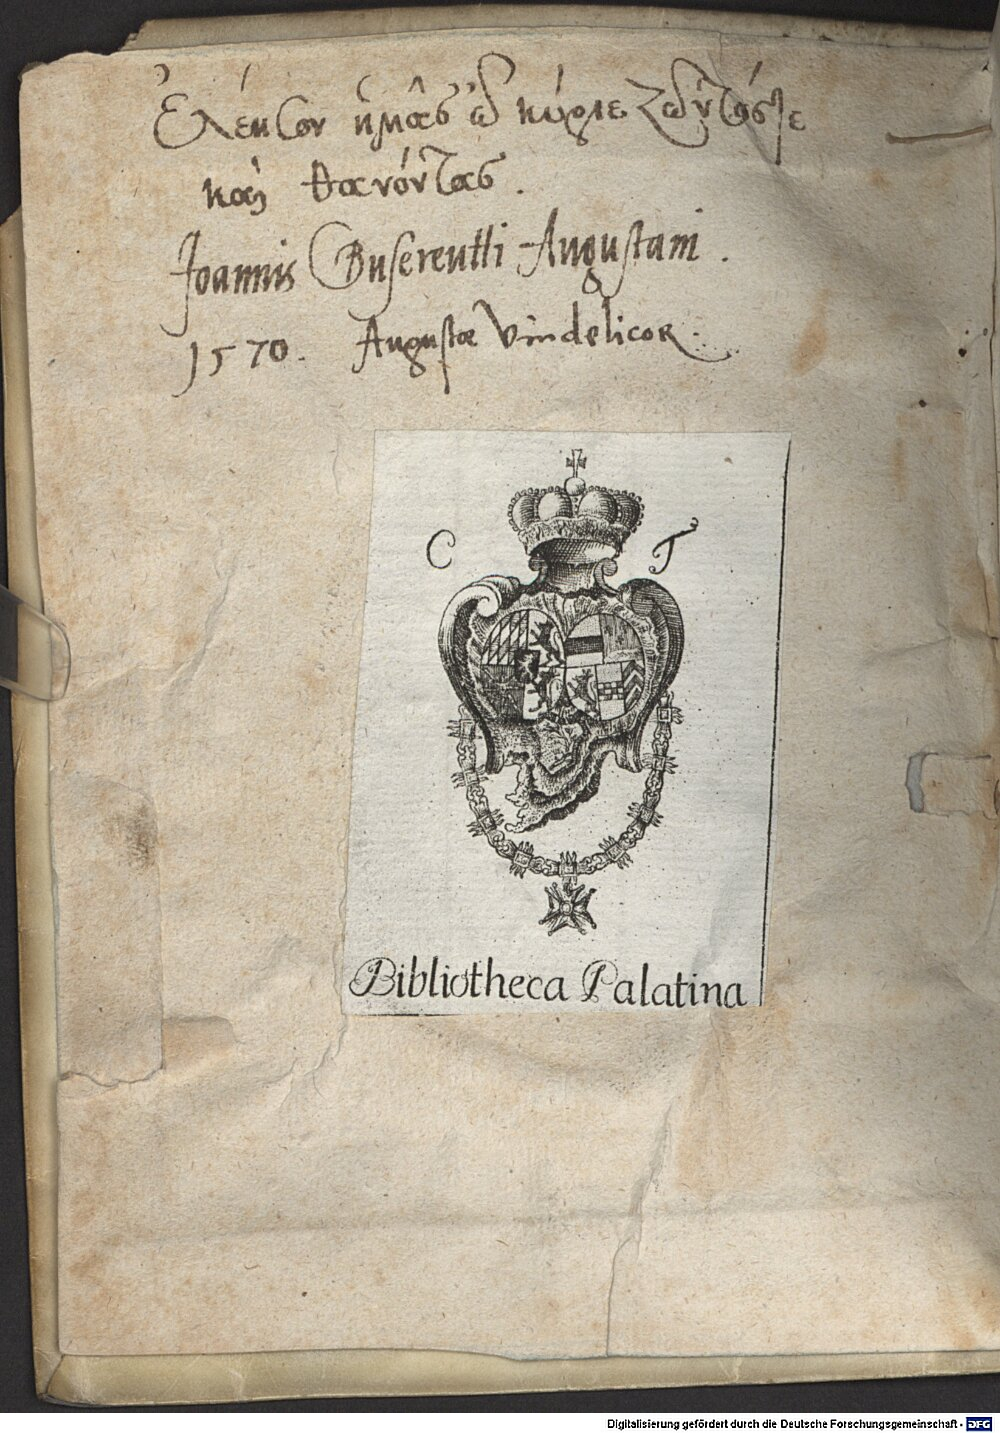 Ἐλέησον ἡμᾶς ὦ κύριε ζῶντάς τε
καὶ θανόντας.
Joannis Busereutti Augustani.
1570. Augustae Vindelicor.
C T
Bibliotheca Palatina
Digitalisierung gefördert durch die Deutsche Forschungsgemeinschaft - DFG